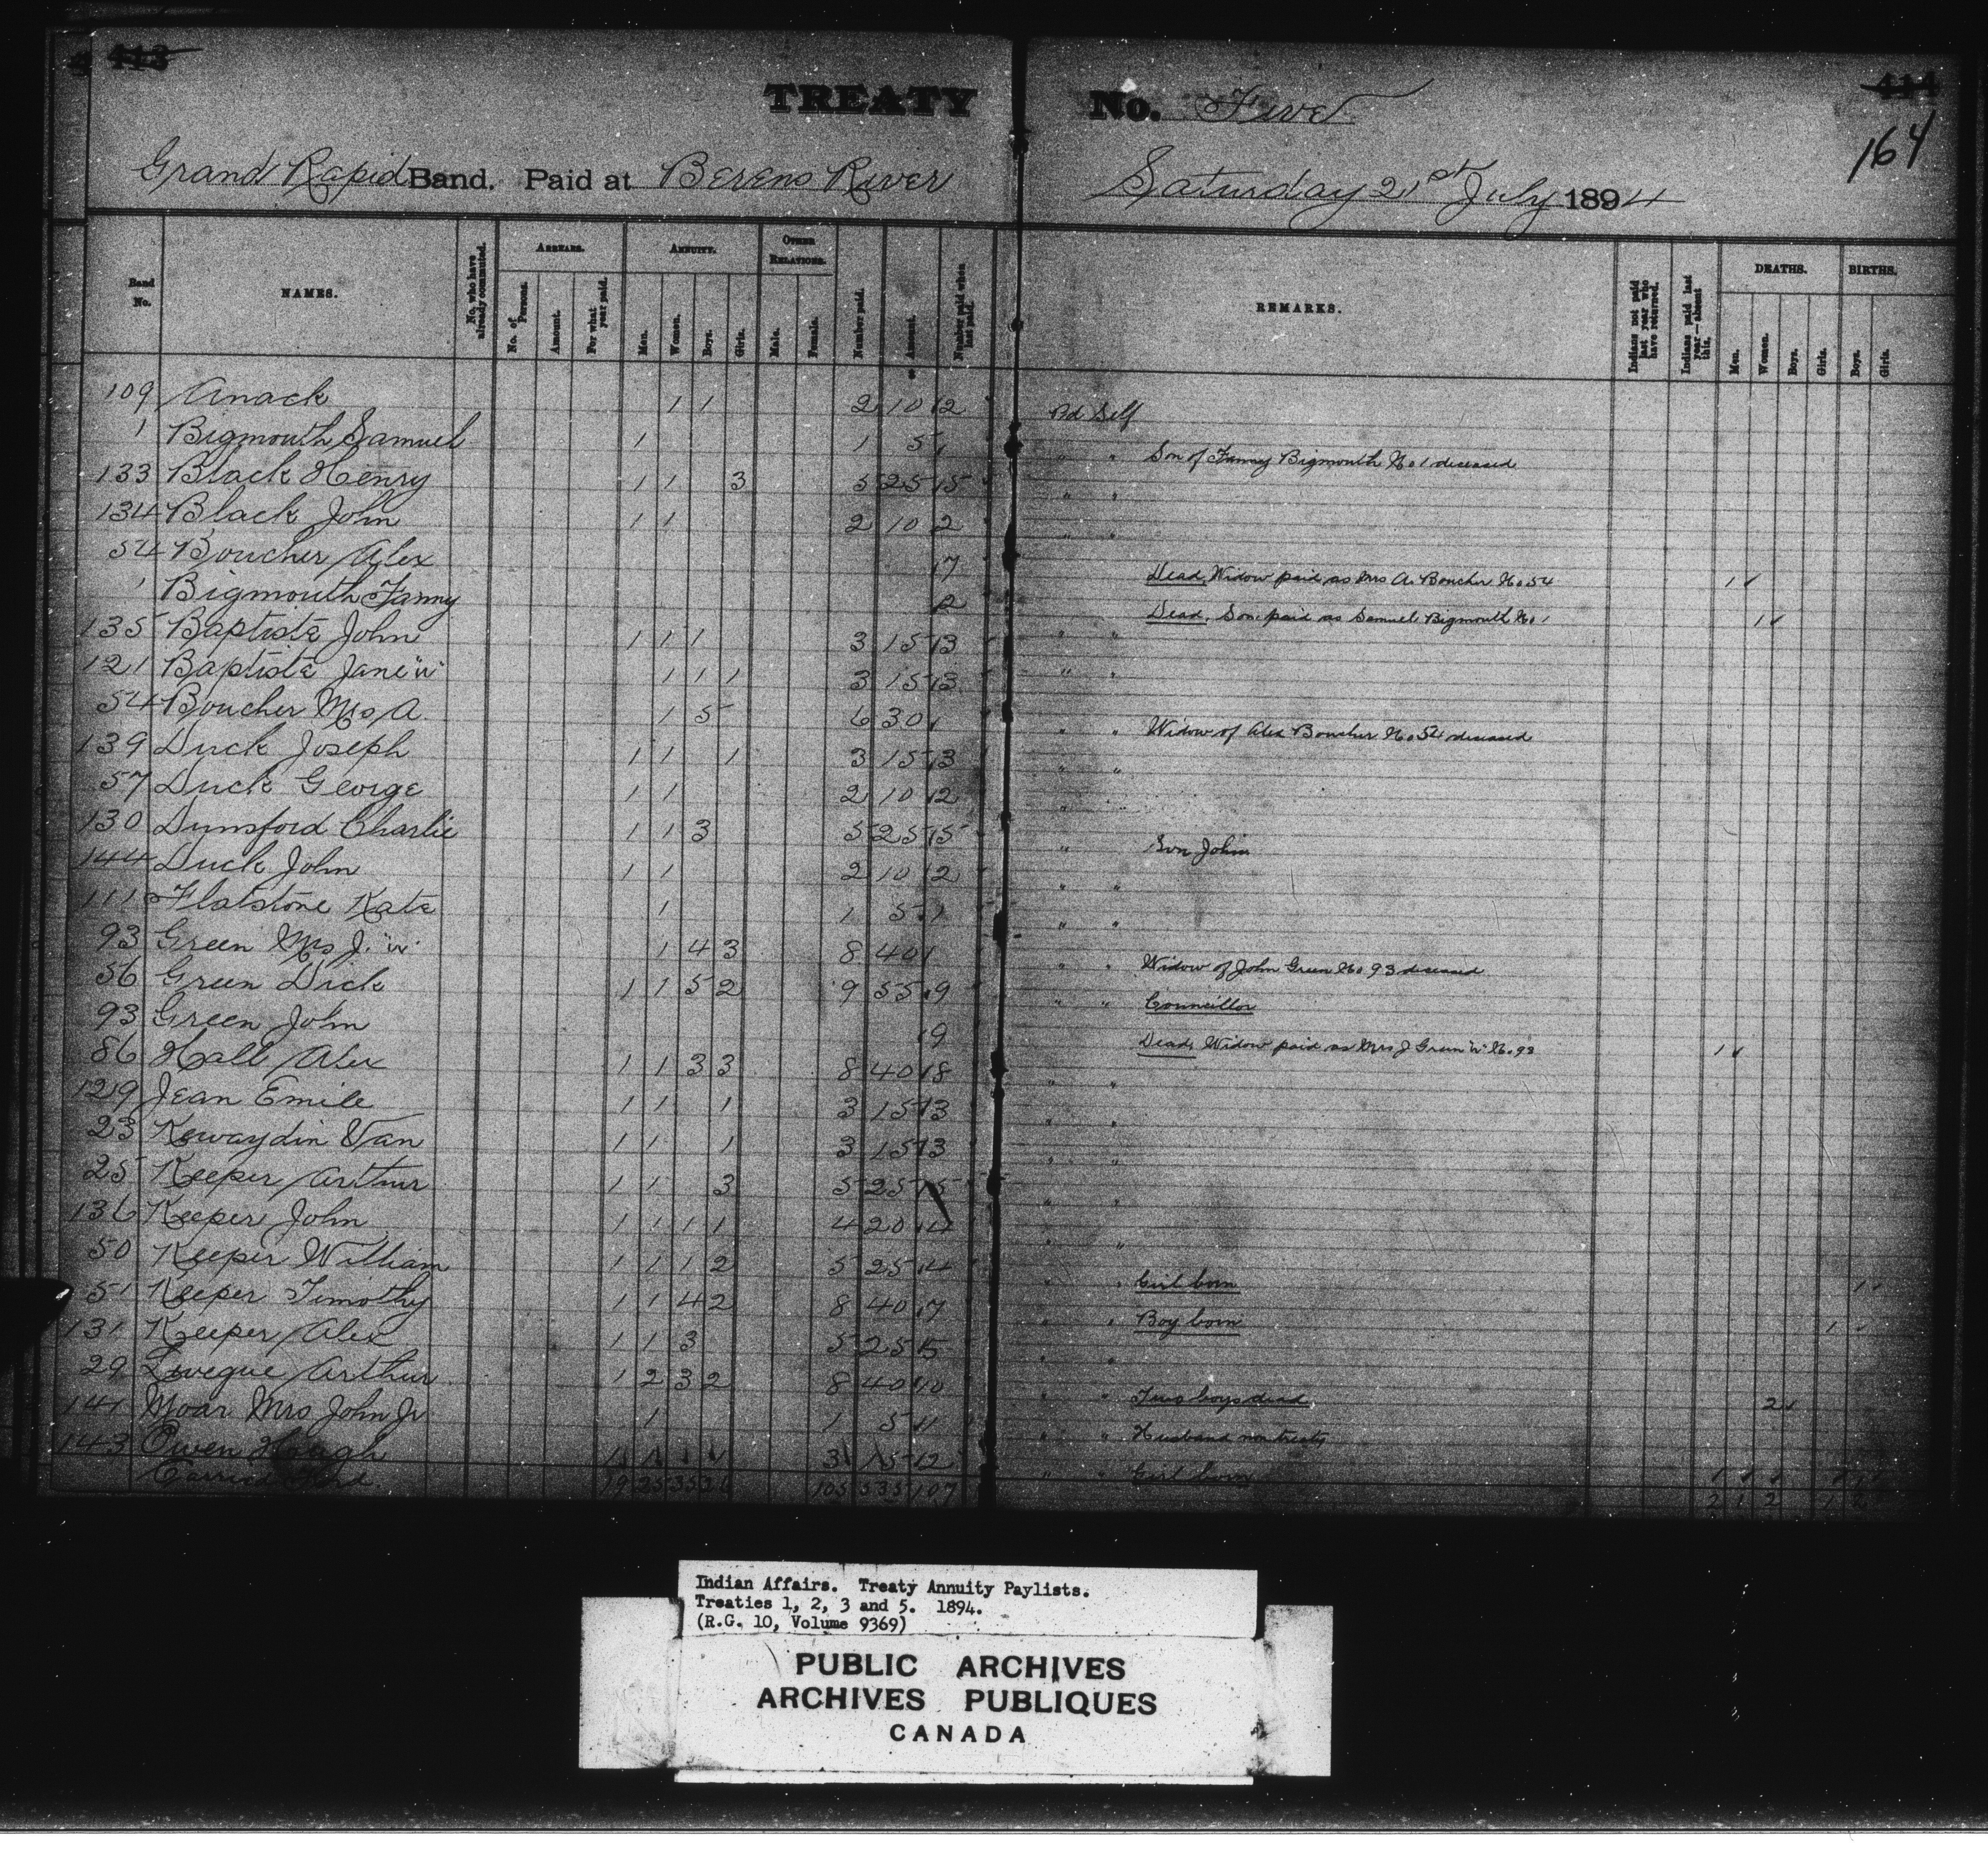 413
414
164
TREATY No. Five
Grand Rapid Band. Paid at Berens River Saturday 21st July 1894
Band No.
NAMES.
No. who have already commuted.
ARREARS.
No. of Persons.
Amount.
For what year paid.
ANNUITY.
Men.
Women.
Boys.
Girls.
OTHER RELATIONS.
Male.
Female.
Number paid.
Amount.
Number paid when last paid.
REMARKS.
Indians not paid last year who have returned.
Indians paid last year—absent this.
DEATHS.
Men.
Women.
Boys.
Girls.
BIRTHS.
Boys.
Girls.
109 Anack 1 1 2 10 2 Pd Self
1 Bigmouth Samuel 1 1 5 1 " " Son of Fanny Bigmouth No 1 deceased
133 Black Henry 1 1 3 5 25 5 " "
134 Black John 1 1 2 10 2 " "
54 Boucher Alex 7 Dead, Widow paid as Mrs A. Boucher No 54 1
1 Bigmouth Fanny 2 Dead, Son paid as Samuel Bigmouth No 1 1
135 Baptiste John 1 1 1 3 15 3 " "
121 Baptiste Jane "W" 1 1 1 3 15 3 " "
54 Boucher Mrs A 1 5 6 30 1 " " Widow of Alex Boucher No 54 deceased
139 Duck Joseph 1 1 1 3 15 3 " "
57 Duck George 1 1 2 10 2 " "
130 Dunsford Charlie 1 1 3 5 25 5 " Son John
144 Duck John 1 1 2 10 2 " "
111 Flatstone Kate 1 1 5 1 " "
93 Green Mrs J. "W" 1 4 3 8 40 1 " " Widow of John Green No 93 deceased
56 Green Dick 1 1 5 2 9 55 9 " " Councillor
93 Green John 9 Dead, Widow paid as Mrs J Green "W" No 93 1
86 Hall Alex 1 1 3 3 8 40 8 " "
129 Jean Emile 1 1 1 3 15 3 " "
23 Kewaydin Van 1 1 1 3 15 3 " "
25 Keeper Arthur 1 1 3 5 25 5 " "
136 Keeper John 1 1 1 1 4 20 4 " "
50 Keeper William 1 1 1 2 5 25 4 " " Girl born 1
51 Keeper Timothy 1 1 4 2 8 40 7 " " Boy born 1
131 Keeper Alex 1 1 3 5 25 5 " "
29 Levegue Arthur 1 2 3 2 8 40 10 " " Two boys dead 2
141 Moar Mrs John Jr 1 1 5 1 " " Husband non treaty
143 Owen Hough 1 1 1 3 15 2 " " Girl born 1
Carried Ford 19 25 35 26 105 535 107 2 1 2 1 2
Indian Affairs. Treaty Annuity Paylists.
Treaties 1, 2, 3 and 5. 1894.
(R.G. 10, Volume 9369)
PUBLIC ARCHIVES
ARCHIVES PUBLIQUES
CANADA